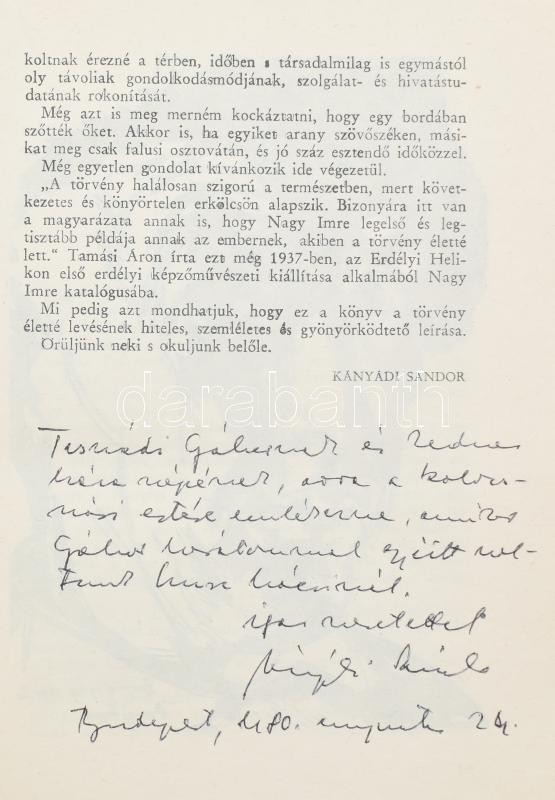 koltnak érezné a térben, időben s társadalmilag is egymástól
oly távoliak gondolkodásmódjának, szolgálat- és hivatástu-
datának rokonítását.
Még azt is meg merném kockáztatni, hogy egy bordában
szőtték őket. Akkor is, ha egyiket arany szövőszéken, mási-
kat meg csak falusi osztovátán, és jó száz esztendő időközzel.
Még egyetlen gondolat kívánkozik ide végezetül.
„A törvény halálosan szigorú a természetben, mert követ-
kezetes és könyörtelen erkölcsön alapszik. Bizonyára itt van
a magyarázata annak is, hogy Nagy Imre legelső és leg-
tisztább példája annak az embernek, akiben a törvény életté
lett.“ Tamási Áron írta ezt még 1937-ben, az Erdélyi Heli-
kon első erdélyi képzőművészeti kiállítása alkalmából Nagy
Imre katalógusába.
Mi pedig azt mondhatjuk, hogy ez a könyv a törvény
életté levésének hiteles, szemléletes és gyönyörködtető leírása.
Örüljünk neki s okuljunk belőle.
KÁNYÁDI SÁNDOR
darabanth
Tasnádi Gábornak és kedves
háza népének, arra a
estére emlékezve, amikor
Gábor barátommal együtt
igaz szeretettel
Kányádi Sándor
Budapest, 1980. augusztus 24.